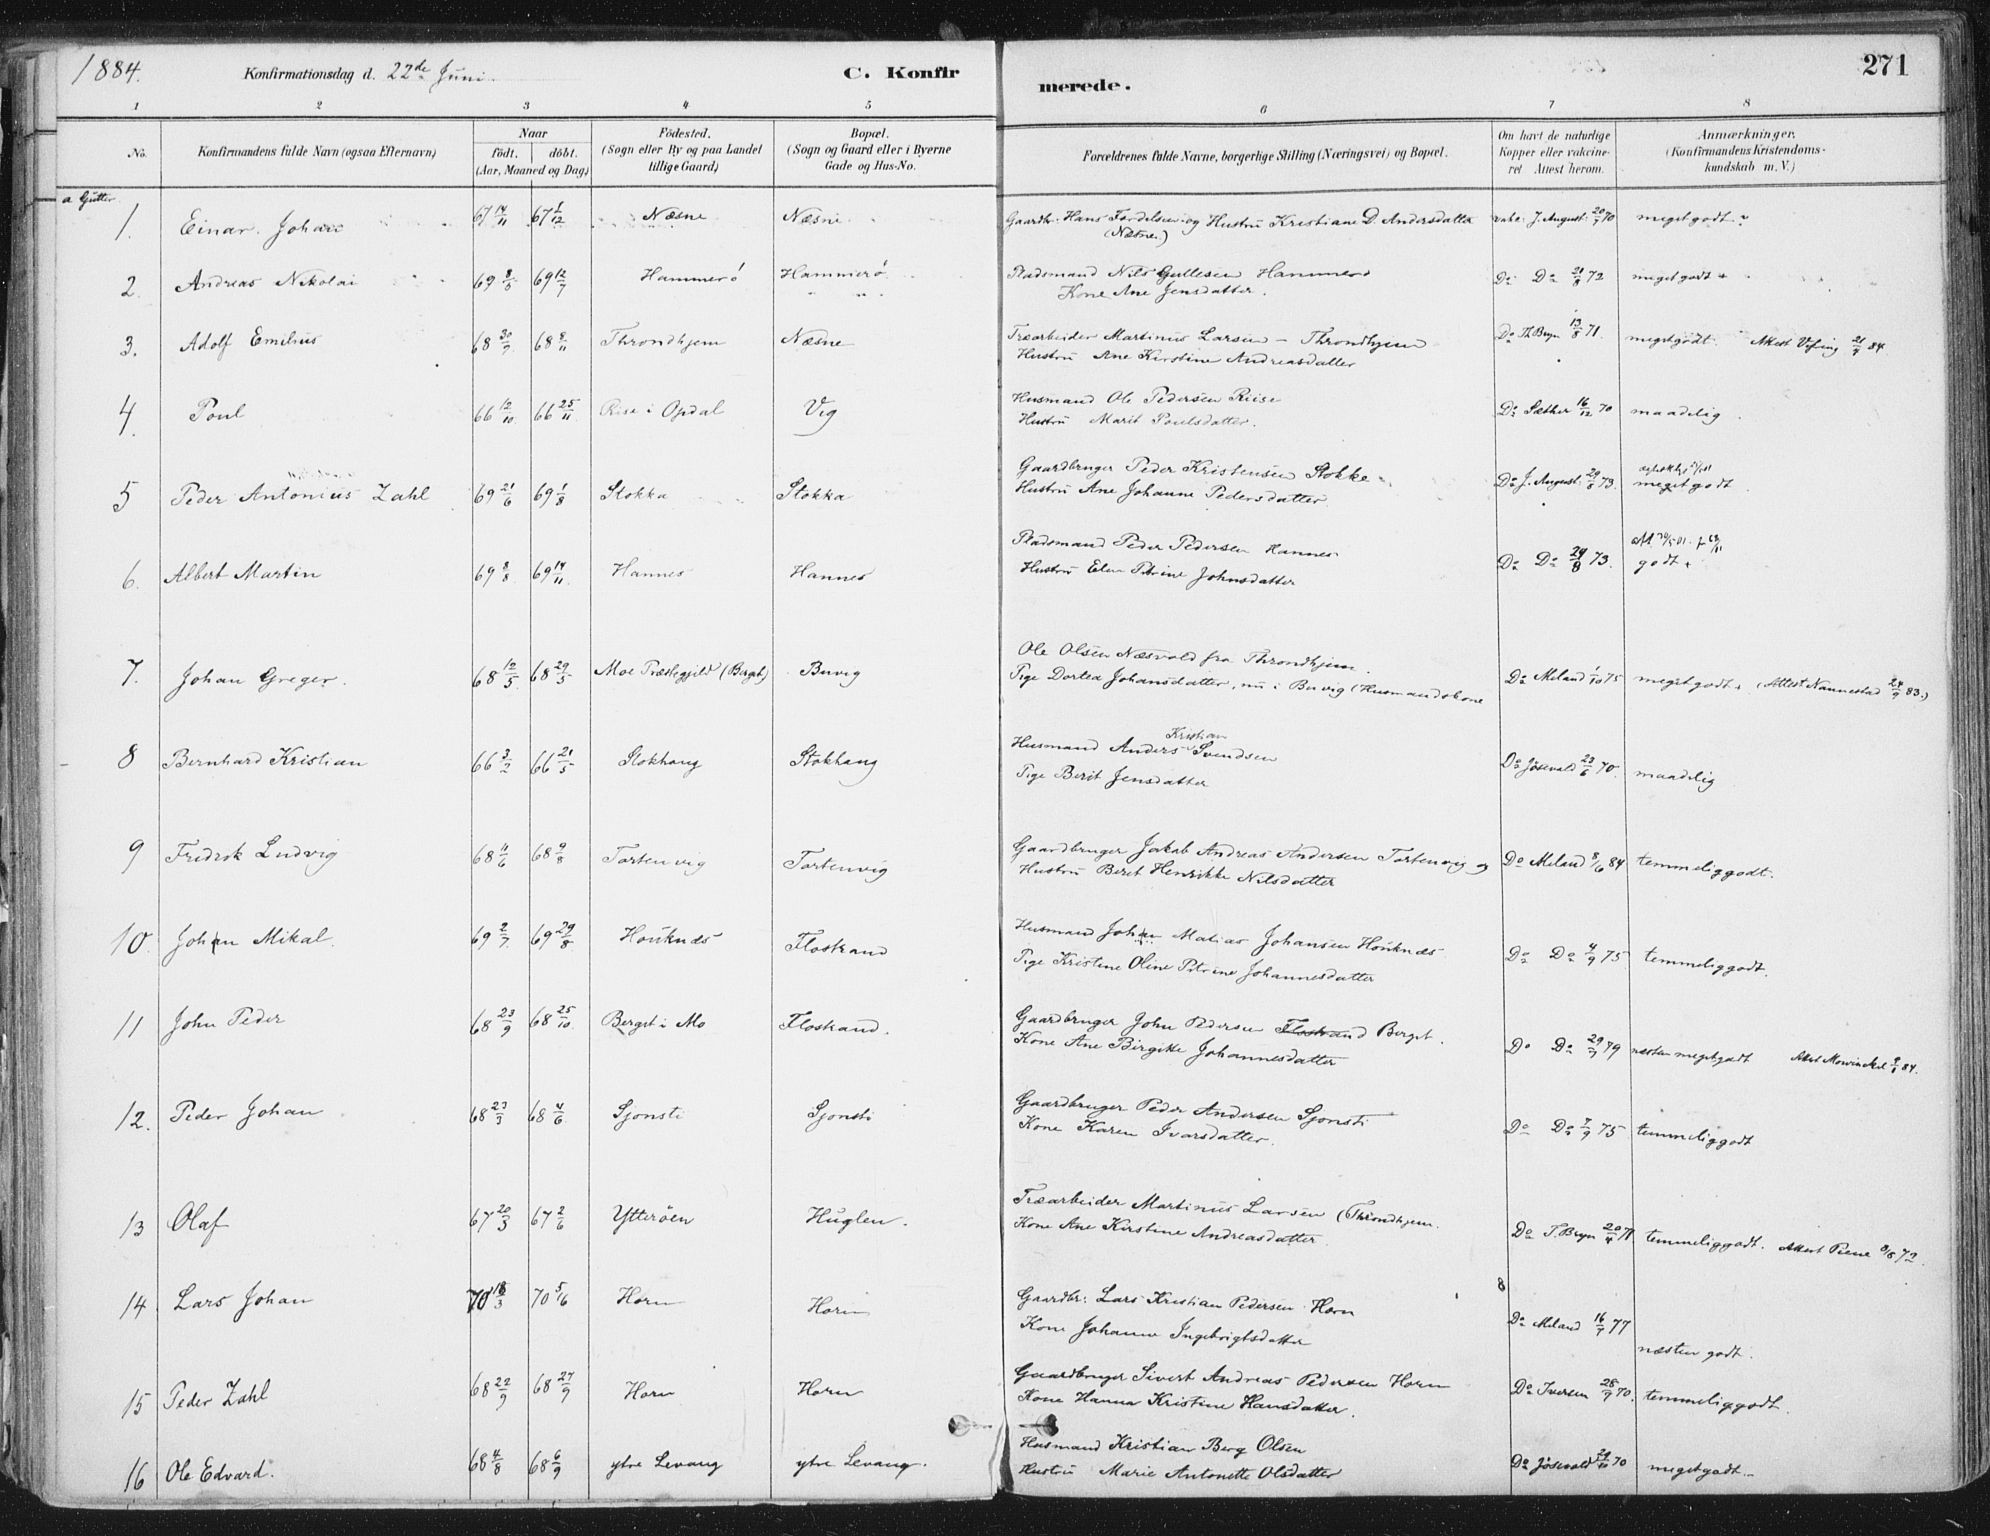 1884. Konfirmationsdag d. 22de Juni. C. Konfir merede. 271
1 2 3 4 5 6 7 8
No. Konfirmandens fulde Navn (ogsaa Efternavn) Naar födt. döbt. (Aar, Maaned og Dag) Födested. (Sogn eller By og paa Landet tillige Gaard) Bopæl. (Sogn og Gaard eller i Byerne Gade og Hus-No. Forældrenes fulde Navne, borgerlige Stilling (Næringsvei) og Bopæl. Om havt de naturlige Kopper eller vakcineret Attest herom. Anmærkninger. (Konfirmandens Kristendomskundskab m. V.)
a Gutter
1. Einar Johan 67 14/11 67 1/12 Næsne Næsne Gaardbr: Hans og Hustru Kristiane D. Andersdatter (Næsne) vakc: J. August: 20/9 70 megetgodt
2. Andreas Nikolai 69 8/5 69 12/7 Hammerö Hammerö Pladsmand Nils Gullesen Hammerö
Kone Ane Jensdatter. Do Do 21/8 72 megetgodt +
3. Adolf Emilius 68 30/9 68 8/11 Throndhjem Næsne Træarbeider Martinus Larsen - Throndhjem
Hustru Ane Kirstine Andreasdatter Do Th Bryn 13/8 71. megetgodt. Attest 21/9 84
4. Poul 66 12/10 66 25/11 Rise i Opdal Vig Husmand Ole Pedersen Riise
Hustru Marit Poulsdatter. Do Sæther 16/12 70 maadelig
5 Peder Antonius Zahl 69 21/6 69 1/8 Stokka Stokka Gaardbruger Peder Kristensen Stokke
Hustru Ane Johanne Pedersdatter Do J. August: 29/8 73. megetgodt
6. Albert Martin 69 8/8 69 14/11 Hannes Hannes Pladsmand Peder Pedersen Hannes
Hustru Elen Petrine Johnsdatter Do Do 29/8 73. godt +
7. Johan Greger. 68 12/5 68 29/5 Moe Præstegjeld (Berget) Buvig Ole Olsen Næsvold fra Throndhjem
Pige Dortea Johansdatter, nu i Buvig (Husmandskone Do Meland 1/10 75 megetgodt + (Attest Nannestad 24/9 83.)
8 Bernhard Kristian 66 3/2 66 21/5 Stokhaug Stokhaug Husmand Anders Kristian Svendsen
Pige Berit Jensdatter Do Jösevold 23/6 70. maadelig
9 Fredrik Ludvig 68 11/6 68 9/8 Tortenvig Tortenvig Gaardbruger Jakob Andreas Andersen Tortenvig og
Hustru Beret Henrikke Nilsdatter Do Meland 8/6 84 temmeliggodt.
10. Johan Mikal 69 2/7 69 29/8 Houknæs Flostrand Husmand Johan Matias Johansen Houknæs
Pige Kristine Oline Petrine Johannesdatter Do Do 4/9 75 temmeliggodt.
11 John Peder 68 23/9 68 25/10 Berget i Mo Flostrand. Gaardbruger John Pedersen Flostrand Berget.
Kone Ane Birgitte Johannesdatter Do Do 29/7 79 næsten megetgodt Attest Mowinckel 84.
12. Peder Johan 68 23/3 68 4/6 Sjonsti Sjonsti Gaardbruger Peder Andersen Sjonsti
Kone Karen Ivarsdatter. Do Do 7/9 75 temmeliggodt
13 Olaf 67 20/3 67 2/6 Ytteröen Huglen. Træarbeider Martinus Larsen (Throndhjem.
Kone Ane Kirstine Andreasdatter Do T. Bryn 20/4 71 temmeliggodt. Attest Piene 3/8 72.
14 Lars Johan 70 18/3 70 5/6 Horn Horn Gaardbr: Lars Kristian Pedersen Horn
Kone Johanne Ingebrigtsdatter Do Meland 16/7 77 næsten godt.
15 Peder Zahl 68 22/9 68 27/9 Horn Horn Gaardbruger Sivert Andreas Pedersen Horn
Kone Hanna Kristine Hansdatter. Do Iversen 28/9 70. temmeliggodt.
16 Ole Edvard. 68 4/8 68 6/9 ytre Levang ytre Levang. Husmand Kristian Berg Olsen
Hustru Marie Antonette Olsdatter Do Jösevold 29/11 70 megetgodt.